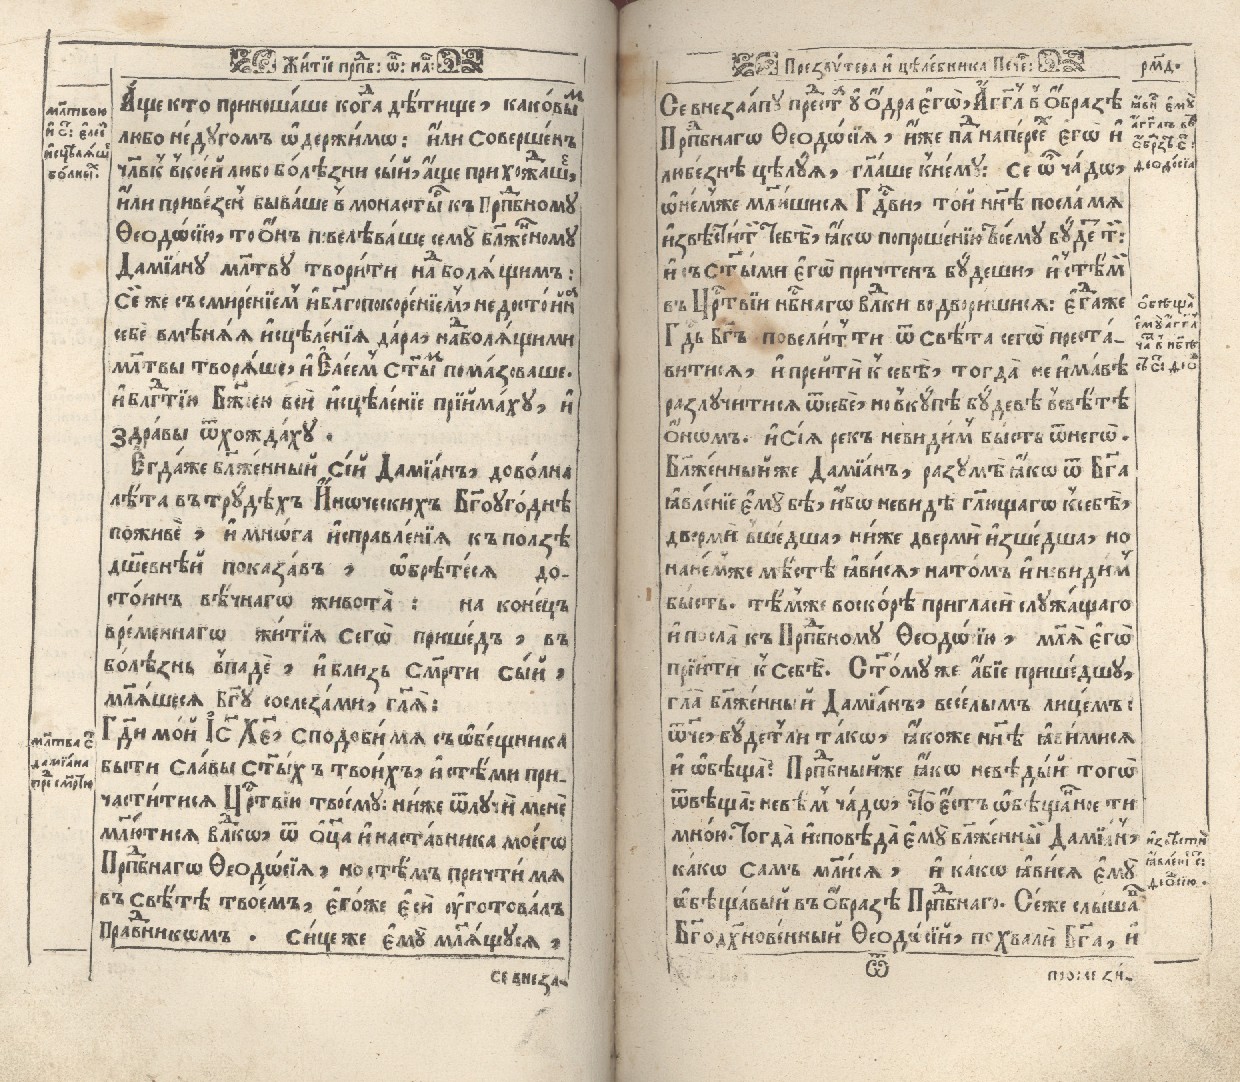 Житїе прпⷣб: ѿ: на:
А҆ще кто приноша́ше когⷣа дѣ́тище, каковы́мъ
либо неду́гомъ ѡ҆держи́мо: и҆́ли соверше́нъ
чл҃вкъ в̾коей либо бо́лѣзни сы́й, а҆́ще прихожда́ше,
и҆́ли приве́зен быва́ше в̾ монасты́рь къ Прпⷣбному
Ѳеодѡ́сїю, то ѻ҆́нъ повелѣва́ше сему̀ блаже́нному
Дамїа́ну мл҃тву твори́ти над̾ боля́щимъ:
Се́ же съ смире́нїемъ и҆ бл҃гопокоре́нїемъ, недосто́йна
себѐ вмѣня́я и҆сцѣле́нїя да́ра, над̾ боля́щими
мл҃твы творя́ше, и҆ Е҆ле́емъ ст҃ы́мъ пома́зоваше.
и҆ блгⷣтїю Бж҃їею всѝ и҆сцѣле́нїе прїйма́ху, и҆
здра́вы ѿхожда́ху.
Е҆гда́же блаже́нный сі́й Дамїа́нъ, дово́лна
лѣ́та въ тру́дѣхъ И҆́ноческихъ Бг҃оуго́днѣ
поживѐ, и҆ мнѡ́га и҆справле́нїя къ по́лзѣ
дш҃е́внѣй показа́въ, ѡ҆брѣ́теся до-
сто́инъ вѣ́чнагѡ живота̀: на коне́цъ
вре́меннагѡ житїя̀ сегѡ̀ прише́дъ, въ
бо́лѣзнь в̾падѐ, и҆ близь сме́рти сы́й,
мл҃я́шеся Бг҃у со слеза́ми, гл҃я:
Гдⷭ҇и мо́й І҆с҃ Хе҃, сподоби́ мя съ ѻ҆́бещника
бы́ти сла́вы ст҃ы́хъ твои́хъ, и҆ стѣ́ми при-
части́тися Црⷭ҇твїю твоему̀: ни́же ѿлучѝ менѐ
мл҃ютися вл҃кѡ, ѿ ѻ҆ц҃а̀ и҆ наста́вника моегѡ̀
Прпⷣбнагѡ Ѳеодѡ́сїя, но стѣ́мъ причти́ мя
въ свѣ́тѣ твое́мъ, е҆го́же е҆сѝ уготова́лъ
Пра́вⷣникѡмъ. Си́це же е҆му̀ мл҃я́щуся,
се внеза-
мл҃твою
и҆ с҃: е҆леѐ
и҆сцѣля́ющ
бо́лнеⷨ.
мл҃тва с҃
дамїа́на
преⷣ сме́ртїю
Презвѵтера и҆ цѣле́бника Пече:
рмⷣ.
Се внеза́апу преста̀ у҆ ѻ҆дра̀ е҆гѡ̀, А҆́гг҃лъ в̾ ѻ҆́бразѣ
Прпⷣбнагѡ Ѳеодѡ́сїя, и҆́же паⷣ на пе́рсеⷯ е҆гѡ̀ и҆
любе́знѣ цѣлу́я, гл҃аше к̾нему̀: се ѿ ча́дѡ,
ѡ҆ не́мже мл҃и́шися Гдⷭ҇ви, то́й нн҃ѣ посла́ мя
и҆звѣсти́ти тебѣ̀, ꙗ҆́кѡ по проше́нїю твоему̀ бу́детъ:
и҆ съ ст҃ы́ми е҆гѡ̀ причте́нъ бу́деши, и҆ стѣ́мъ
въ Црⷭ҇твїи нбⷭ҇нагѡ влⷣки водвори́шися: е҆гда́же
Гдⷭ҇ь Бг҃ъ повели́тъ ти ѿ свѣ́та сегѡ̀ преста́-
витися, и҆ прейтѝ к̾ себѣ̀, тогда̀ не и҆́мавѣ
разлучи́тися ѿ себѐ, но в̾ку́пѣ бу́девѣ в̾ свѣ́тѣ
ѻ҆́номъ. и҆ сїя̀ ре́къ неви́димъ бы́сть ѿ негѡ̀.
Блаже́нный же Дамїа́нъ, разумѣ̀ ꙗ҆́кѡ ѿ Бг҃а
ꙗ҆вле́нїе е҆му̀ бѣ̀, и҆́бѡ не ви́дѣ гл҃ющагѡ к̾ себѣ̀,
двермѝ в̾ше́дша, ни́же двермѝ и҆зше́дша, но
на не́мже мѣ́стѣ ꙗ҆ви́ся, на то́мъ и҆ неви́димъ
бы́сть. тѣ́мже воско́рѣ пригласѝ служа́щаго
и҆ посла̀ къ Прпⷣбному Ѳеодѡ́сїю, мл҃я̀ е҆гѡ̀
прїйтѝ к̾ себѣ̀. Ст҃о́му же а҆́бїе прише́дшу,
гл҃а блаже́нный Дамїа́нъ, весе́лымъ лице́мъ:
ѿче, бу́детъ ли та́кѡ, ꙗ҆́коже нн҃ѣ ꙗ҆ви́мися
и҆ ѡ҆бѣща̀? Прпⷣбный же ꙗ҆́кѡ невѣ́дый тогѡ̀
ѿвѣща̀: не вѣ́мъ ча́дѡ, что̀ е҆́стъ ѡ҆бѣща́нное ти
мно́ю. Тогда̀ и҆сповѣ́да е҆му̀ блаже́нный Дамїа́нъ,
ка́кѡ са́мъ мл҃и́ся, и҆ ка́кѡ ꙗ҆ви́ся е҆му̀
ѡ҆бѣща́вый въ ѻ҆́бразѣ Прпⷣбнаго. Се́же слы́шавъ
Бг҃одх҃нове́нный Ѳеодѡ́сїй, похвалѝ Бг҃а, и҆
ѿ
прозези-
ꙗ҆ви е҆му̀
а҆гг҃лъ въ
ѻ҆́бразѣ с҃:
ѳеодо́сїа
ѻ҆бѣща̀
е҆му̀ а҆гг҃лъ
и҆звѣстѝ
ꙗ҆вле́нїе с҃:
ѳеодо́сїю.